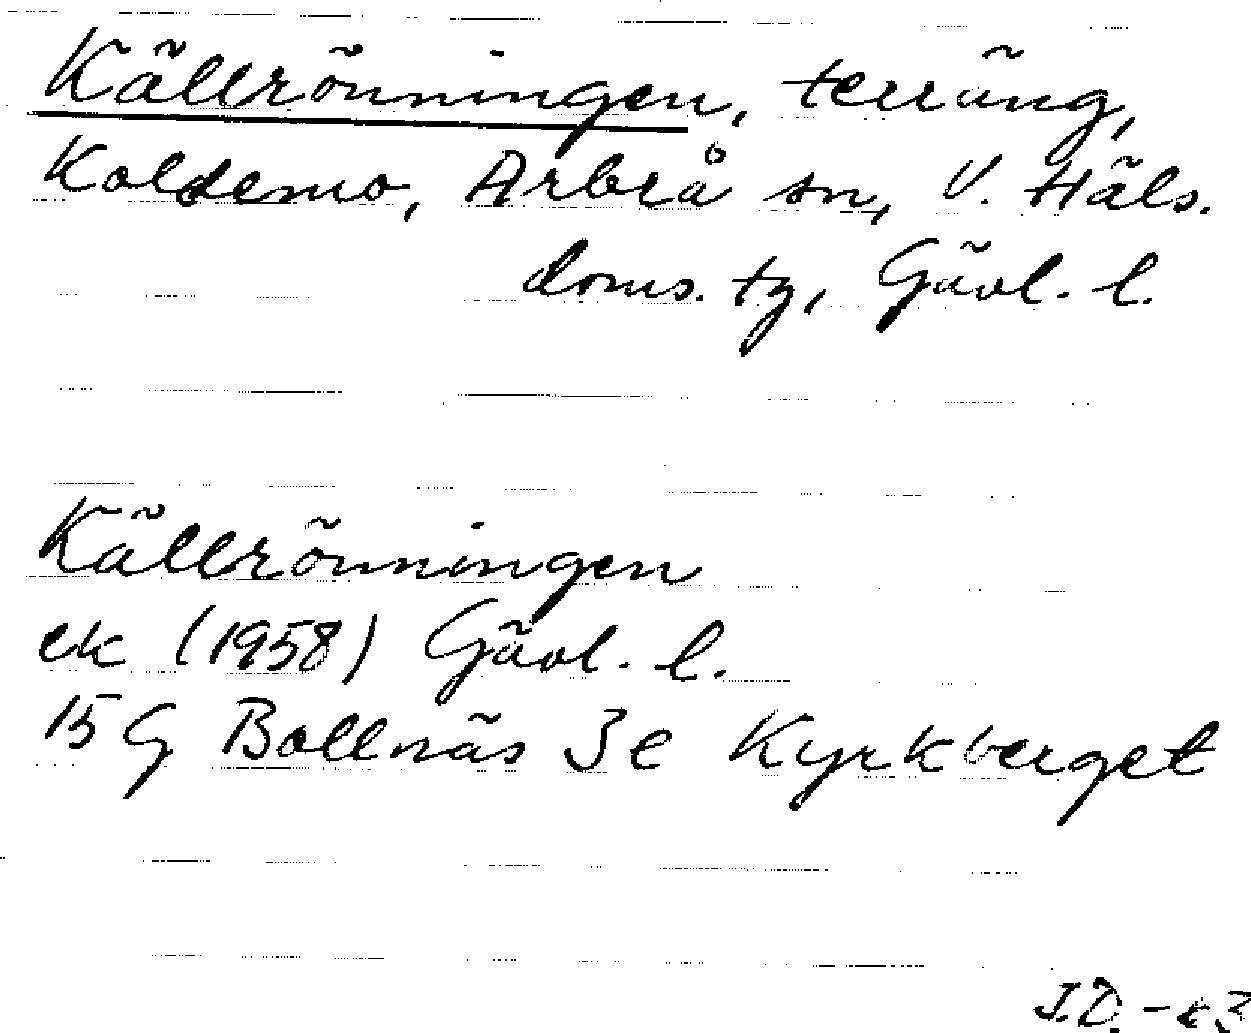 Källrönningen, terräng,
Koldemo, Arbrå sn, V. Häls.
doms. tg, Gävl. l.
Källrönningen
ek (1958) Gävl. l.
15 G Bollnäs 3e Kyrkberget
J.D.